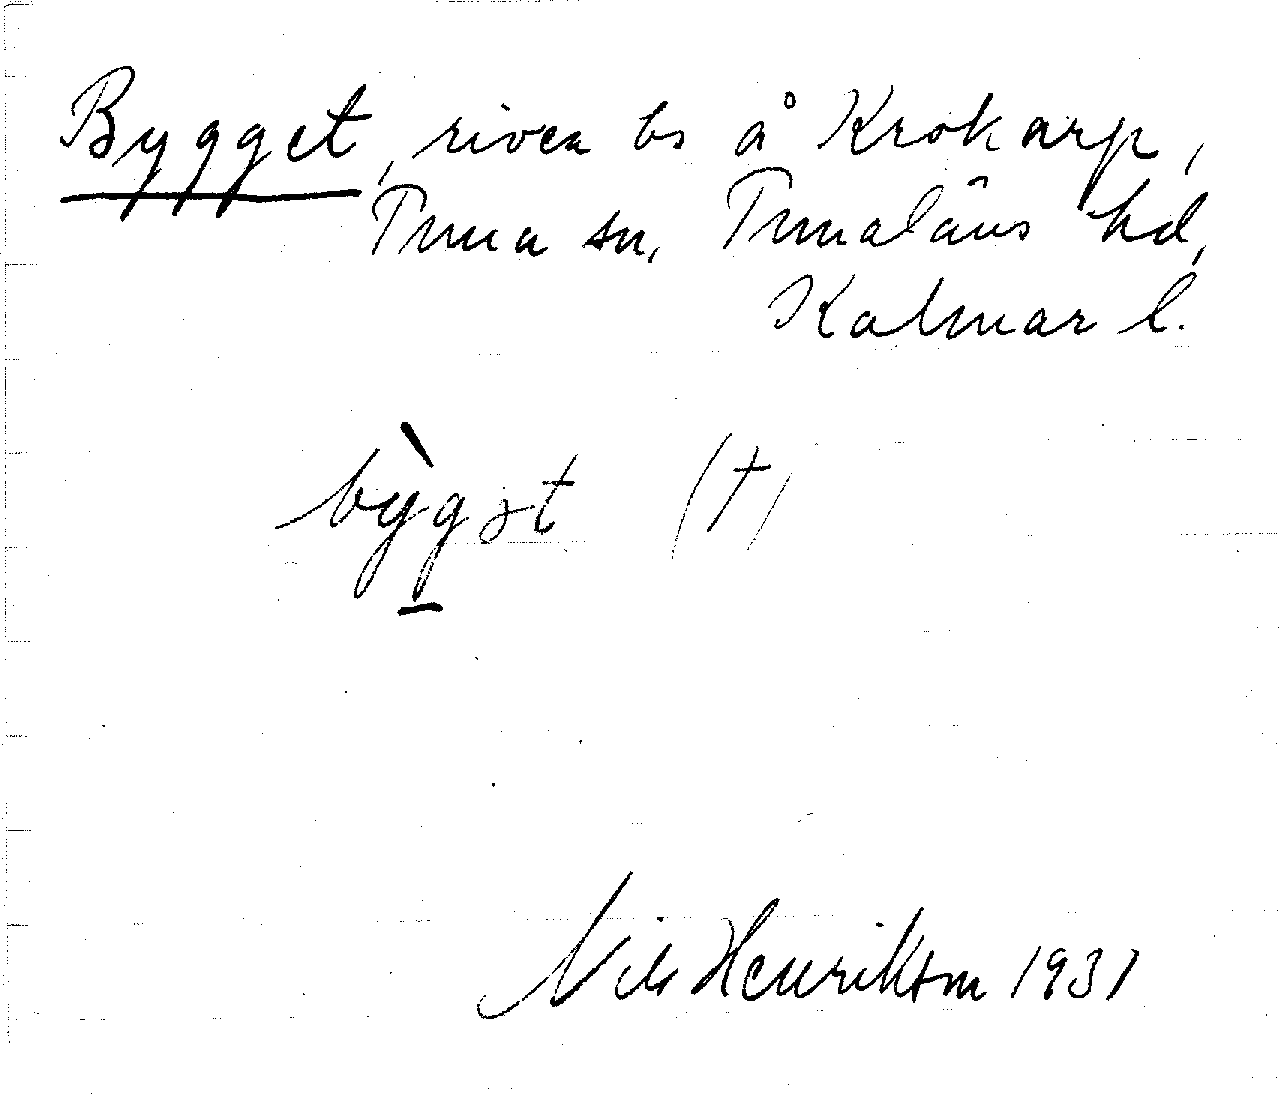 Bygget, riven bs å Krokarp,
Tuna sn, Tunaläns hd,
Kalmar l.
bỳg̲ət (†)
Nils Henrikson 1931